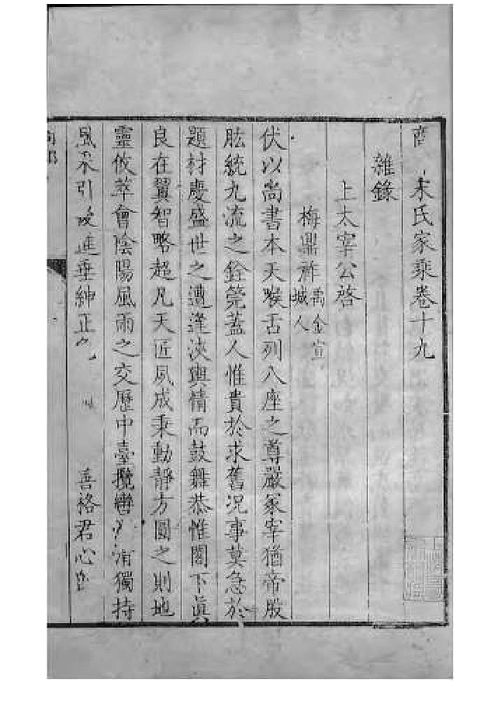 商丘宋氏家乘卷十九
雜錄
上太宰公啓
梅鼎祚 禹金宣城人
伏以尚書本天喉舌列八座之尊嚴冢宰猶帝股
肱統九流之銓筦蓋人惟貴於求舊况事莫急於
題材慶盛世之遭逢浹輿情而鼓舞恭惟閣下真
良在翼智略超凡天匠夙成秉動靜方圓之則地
靈攸萃會陰陽風雨之交歷中臺攬轡 獨持
風采引 進垂紳正 善格君心